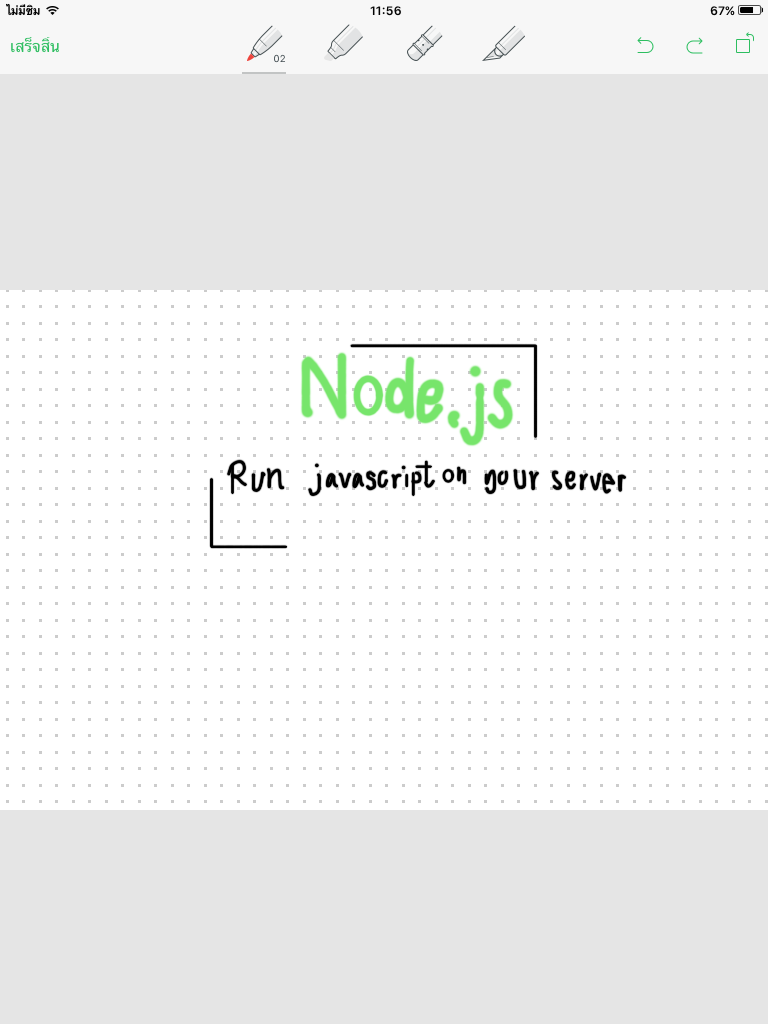 ไม่มีซิม 11:56 67%
เสร็จสิ้น 02
Node.js
Run javascript on your server